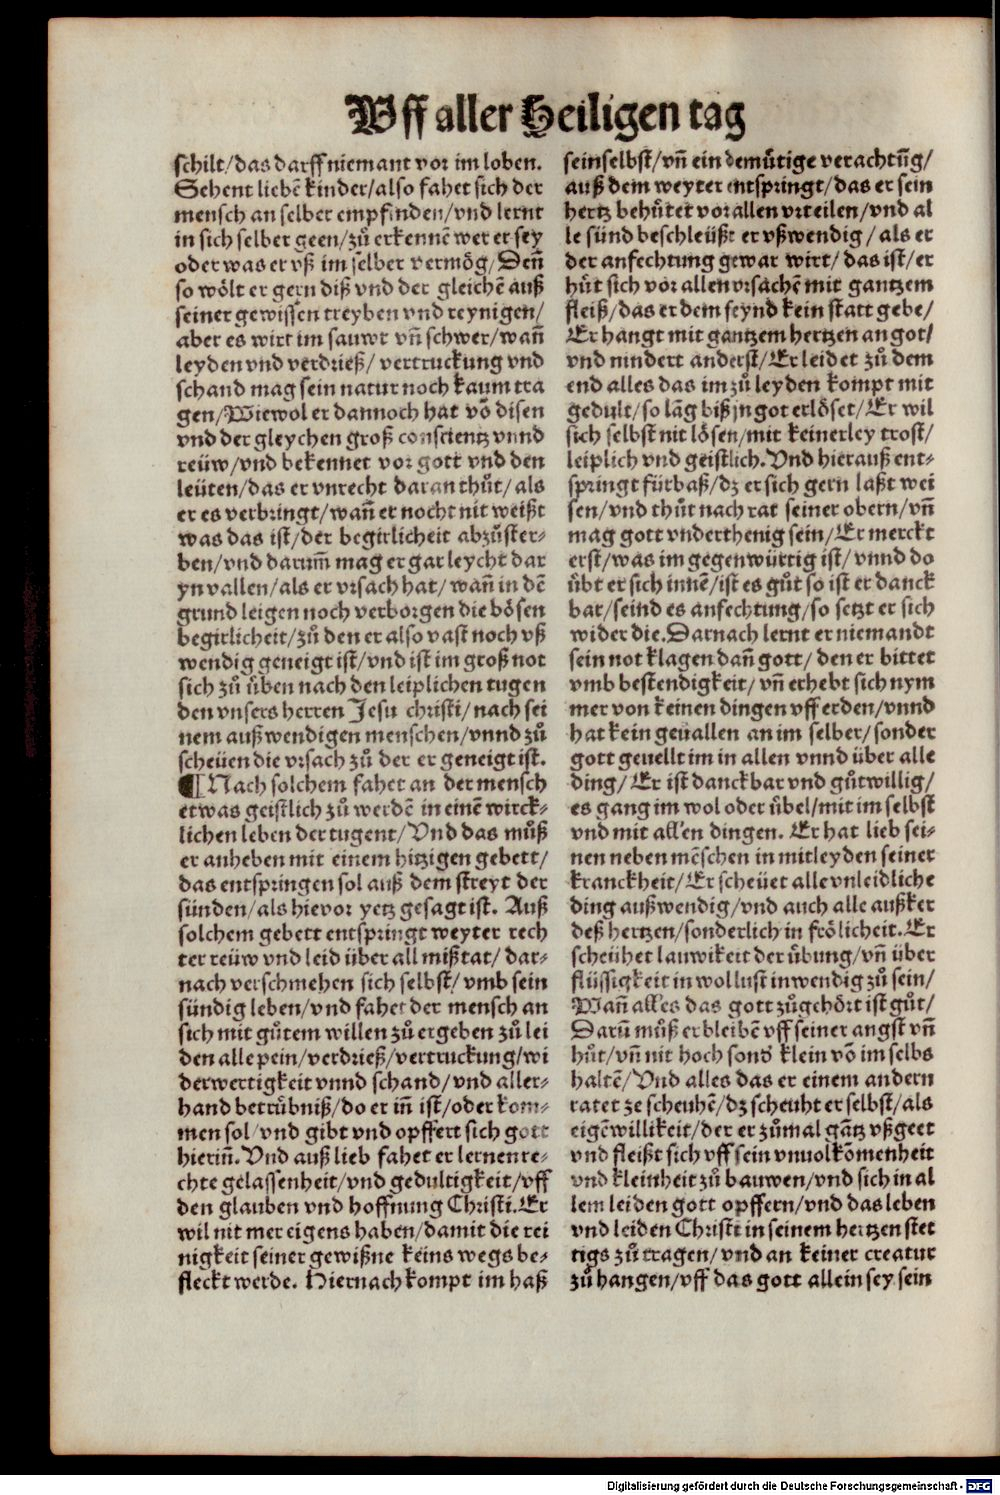 Uff aller Heiligen tag
schilt/das darff niemant vor im loben.
Sehent liebē kinder/also fahet sich der
mensch an selber empfinden/vnd lernt
in sich selber geen/zů erkennē wer er sey
oder was er vß im selber vermög/Deñ
so wölt er gern diß vnd der gleichē auß
seiner gewissen treyben vnd reynigen/
aber es wirt im sauwr vñ schwer/wañ
leyden vnd verdrieß/ vertruckung vnd
schand mag sein natur noch kaum tra
gen/Wiewol er dannoch hat vō disen
vnd der gleychen groß conscientz vnnd
reüw/vnd bekennet vor gott vnd den
leüten/das er vnrecht daran thůt/ als
er es verbringt/wañ er nocht nit weißt
was das ist/der begirlicheit abzůster-
ben/vnd darum̄ mag er gar leycht dar
yn vallen/als er vrsach hat/wañ in dē
grund leigen noch verborgen die bösen
begirlicheit/zů den er also vast noch vß
wendig geneigt ist/vnd ist im groß not
sich zů üben nach den leiplichen tugen
den vnsers herren Jesu christi/nach sei
nem außwendigen menschen/vnnd zů
scheüen die vrsach zů der er geneigt ist.
¶Nach solchem fahet an der mensch
etwas geistlich zů werdē in einē wirck-
lichen leben der tugent/Vnd das můß
er anheben mit einem hitzigen gebett/
das entspringen sol auß dem streyt der
sünden/als hievor yetz gesagt ist. Auß
solchem gebett entspringt weyter rech
ter reüw vnd leid über all mißtat/ dar-
nach verschmehen sich selbst/vmb sein
sündig leben/vnd fahet der mensch an
sich mit gůtem willen zů ergeben zů lei
den alle pein/verdrieß/vertruckung/wi
derwertigkeit vnnd schand/vnd aller-
hand betrübniß/do er iñ ist/oder kom-
men sol/vnd gibt vnd opffert sich gott
hieriñ.Vnd auß lieb fahet er lernen re-
chte gelassenheit/vnd gedultigkeit/vff
den glauben vnd hoffnung Christi.Er
wil nit mer eigens haben/damit die rei
nigkeit seiner gewißne keins wegs be-
fleckt werde. Hiernach kompt im haß
sein selbst/vñ ein demütige verachtūg/
auß dem weyter entspringt/das er sein
hertz behütet vor allen vrteilen/vnd al
le sünd beschleüßt er vßwendig/ als er
der anfechtung gewar wirt/das ist/er
hůt sich vor allen vrsachē mit gantzem
fleiß/das er dem feynd kein statt gebe/
Er hangt mit gantzem hertzen an got/
vnd nindert anderst/Er leidet zů dem
end alles das im zů leyden kompt mit
gedult/so lāg biß jn got erlöset/Er wil
sich selbst nit lösen/mit keinerley trost/
leiplich vnd geistlich.Vnd hierauß ent-
springt fürbaß/dz er sich gern laßt wei
sen/vnd thůt nach rat seiner obern/vñ
mag gott vnderthenig sein/Er merckt
erst/was im gegenwürtig ist/vnnd do
übt er sich innē/ist es gůt so ist er danck
bar/seind es anfechtung/so setzt er sich
wider die.Darnach lernt er niemandt
sein not klagen dañ gott/ den er bittet
vmb bestendigkeit/vñ erhebt sich nym
mer von keinen dingen vff erden/vnnd
hat kein geüallen an im selber/sonder
gott geuellt im in allen vnnd über alle
ding/ Er ist danckbar vnd gůtwillig/
es gang im wol oder übel/mit im selbst
vnd mit allen dingen. Er hat lieb sei-
nen neben mēschen in mitleyden seiner
kranckheit/Er scheüet alle vnleidliche
ding außwendig/vnd auch alle außker
deß hertzen/sonderlich in frölicheit.Er
scheühet lauwikeit der übung/vñ über
flüssigkeit in wollust inwendig zů sein/
Wañ alles das gott zůgehört ist gůt/
Darū můß er bleibē vff seiner angst vñ
hůt/vñ nit hoch sonď klein vō im selbs
haltē/Vnd alles das er einem andern
ratet ze scheuhē/dz scheuht er selbst/als
eigē willikeit/der er zůmal gātz vßgeet
vnd fleißt sich vff sein vnuolkōmenheit
vnd kleinheit zů bauwen/vnd sich in al
lem leiden gott opffern/vnd das leben
vnd leiden Christi in seinem hertzen stet
tigs zů tragen/vnd an keiner creatur
zů hangen/vff das gott allein sey sein
Digitalisierung gefördert durch die Deutsche Forschungsgemeinschaft - DFG